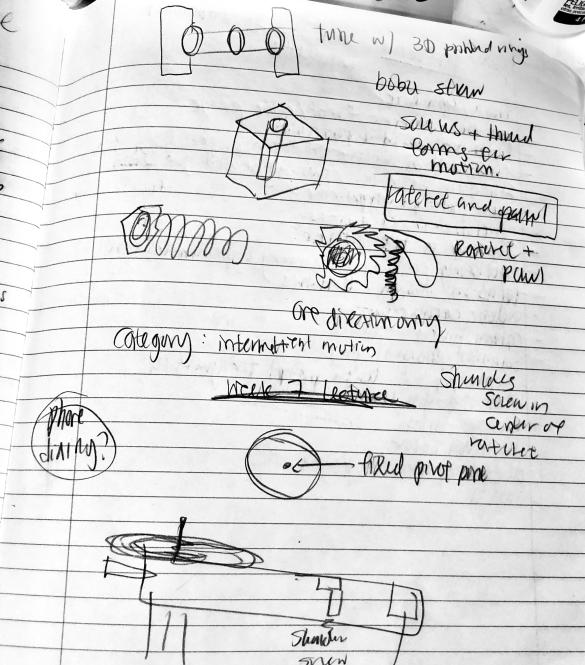 tune w/ 3D printed rings
boba straw
screws + thread
forms for
motion.
ratchet and pawl
Ratchet +
pawl
One direction only
Category: intermittent motion
Week 7 Lecture
Shoulder
screw in
center of
ratchet
phone
dialing?
fixed pivot point
Shoulder
screw